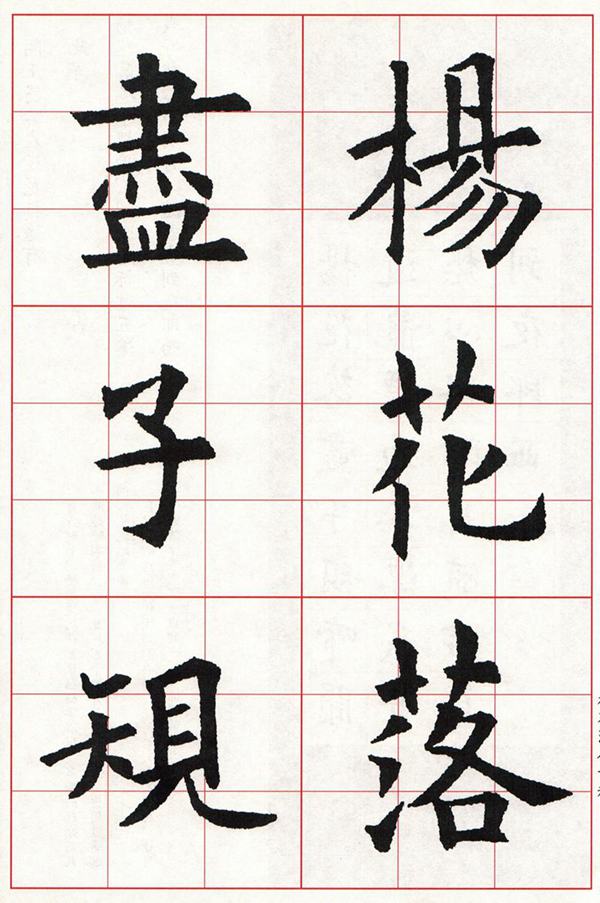 楊花落
盡子規